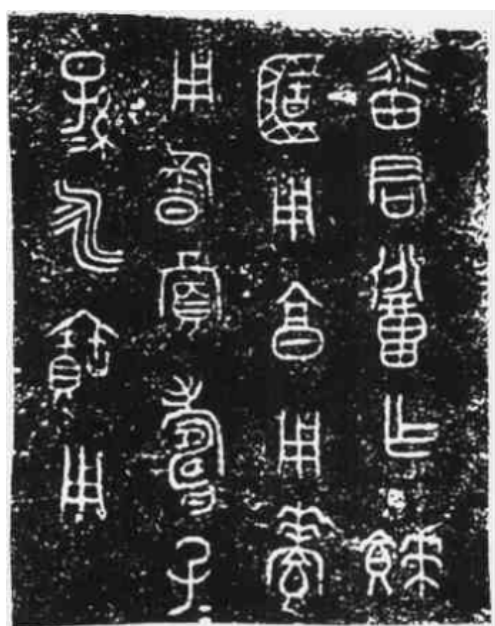 番君召乍餴
簠用亯用孝
用旂眉壽子
孫永寶用